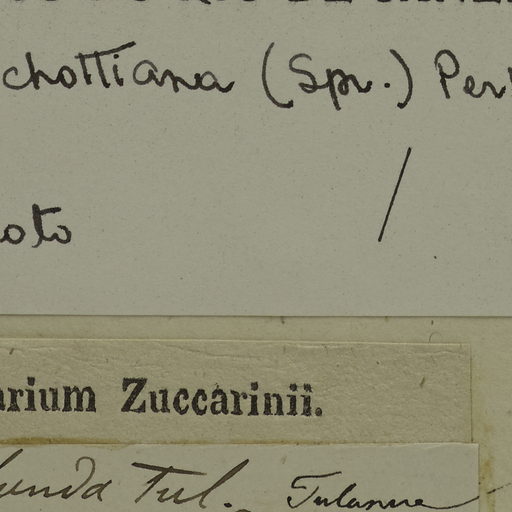 chottiana (Spr.) Per
oto /
arium Zuccarinii.
unda Tul. Tulasne